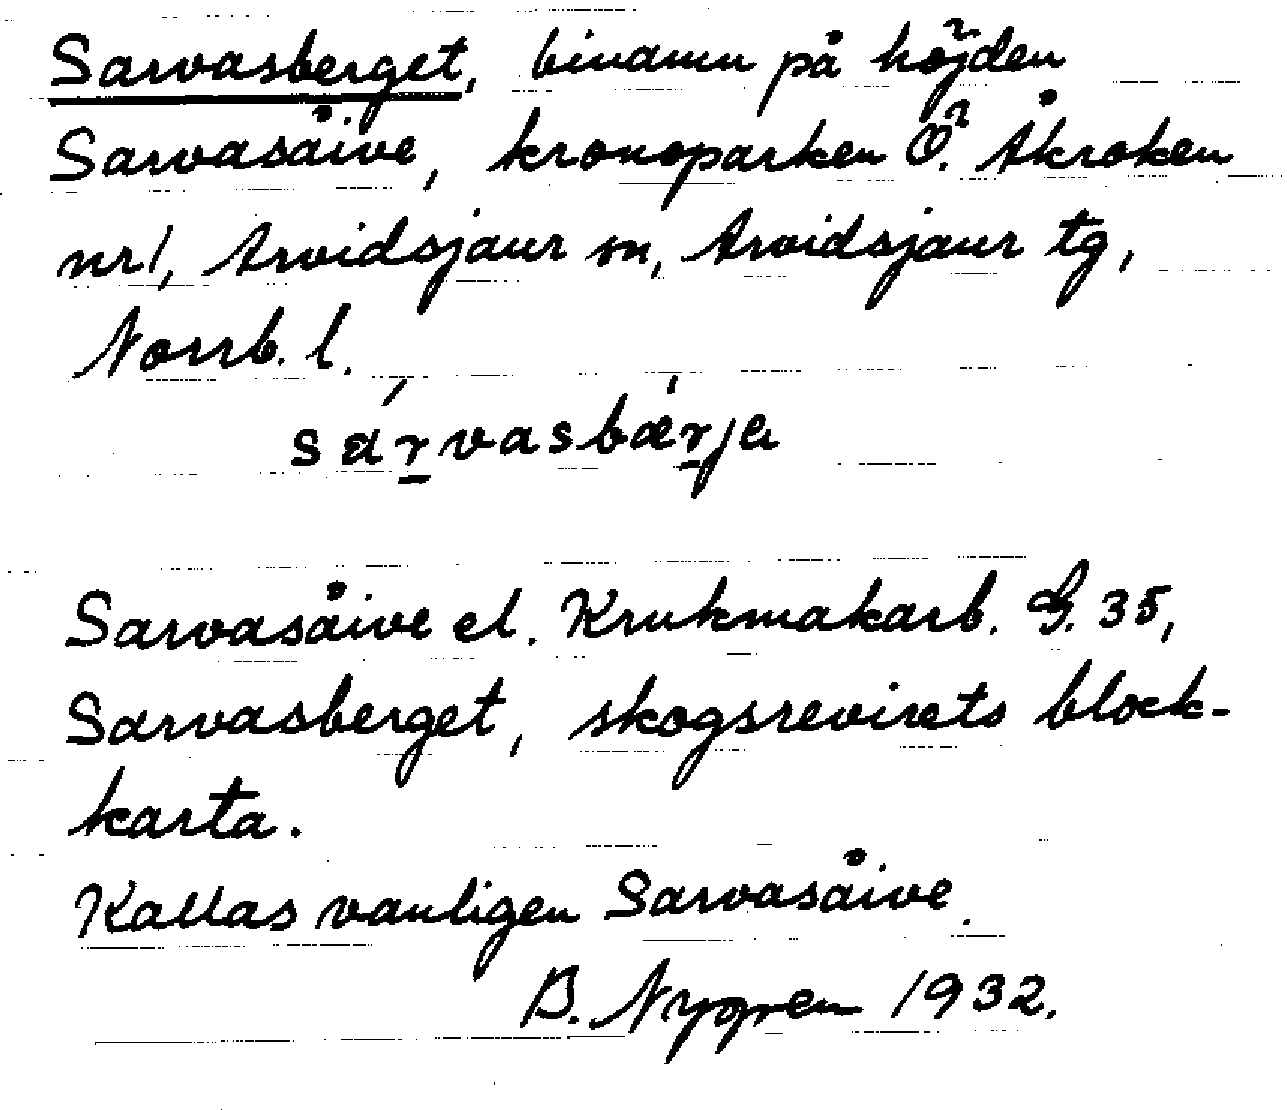 Sarvasberget, binamn på höjden
Sarvasåive, kronoparken Ö. Åkroken
nr 1, Arvidsjaur sn, Arvidsjaur tg,
Norrb. l.
sárvasbær̠ja
Sarvasåive el. Krukmakarb. G. 35,
Sarvasberget, skogsrevirets block-
karta.
Kallas vanligen Sarvasåive.
B. Nygren 1932.